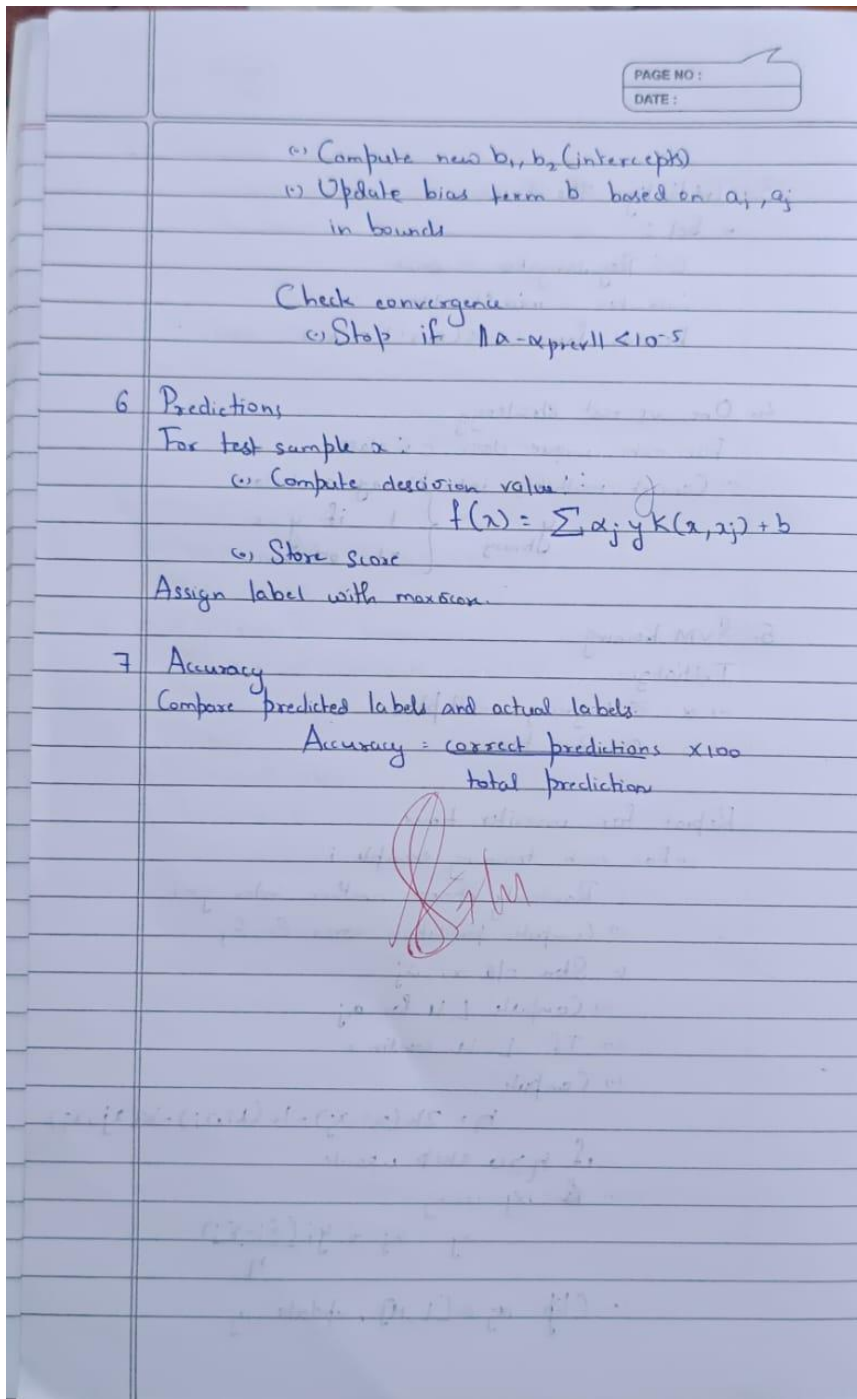 PAGE NO :
DATE :
(•) Compute new b₁, b₂ (intercepts)
(•) Update bias term b based on aᵢ, aⱼ
in bounds
Check convergence :
(•) Stop if ||α-αprev|| < 10⁻⁵
6 Predictions
For test sample x :
(•) Compute descision value :
f(x) = Σ αⱼ y K(x, xⱼ) + b
(•) Store score
Assign label with maxscore.
7 Accuracy
Compare predicted labels and actual labels.
Accuracy = correct predictions ×100
total prediction